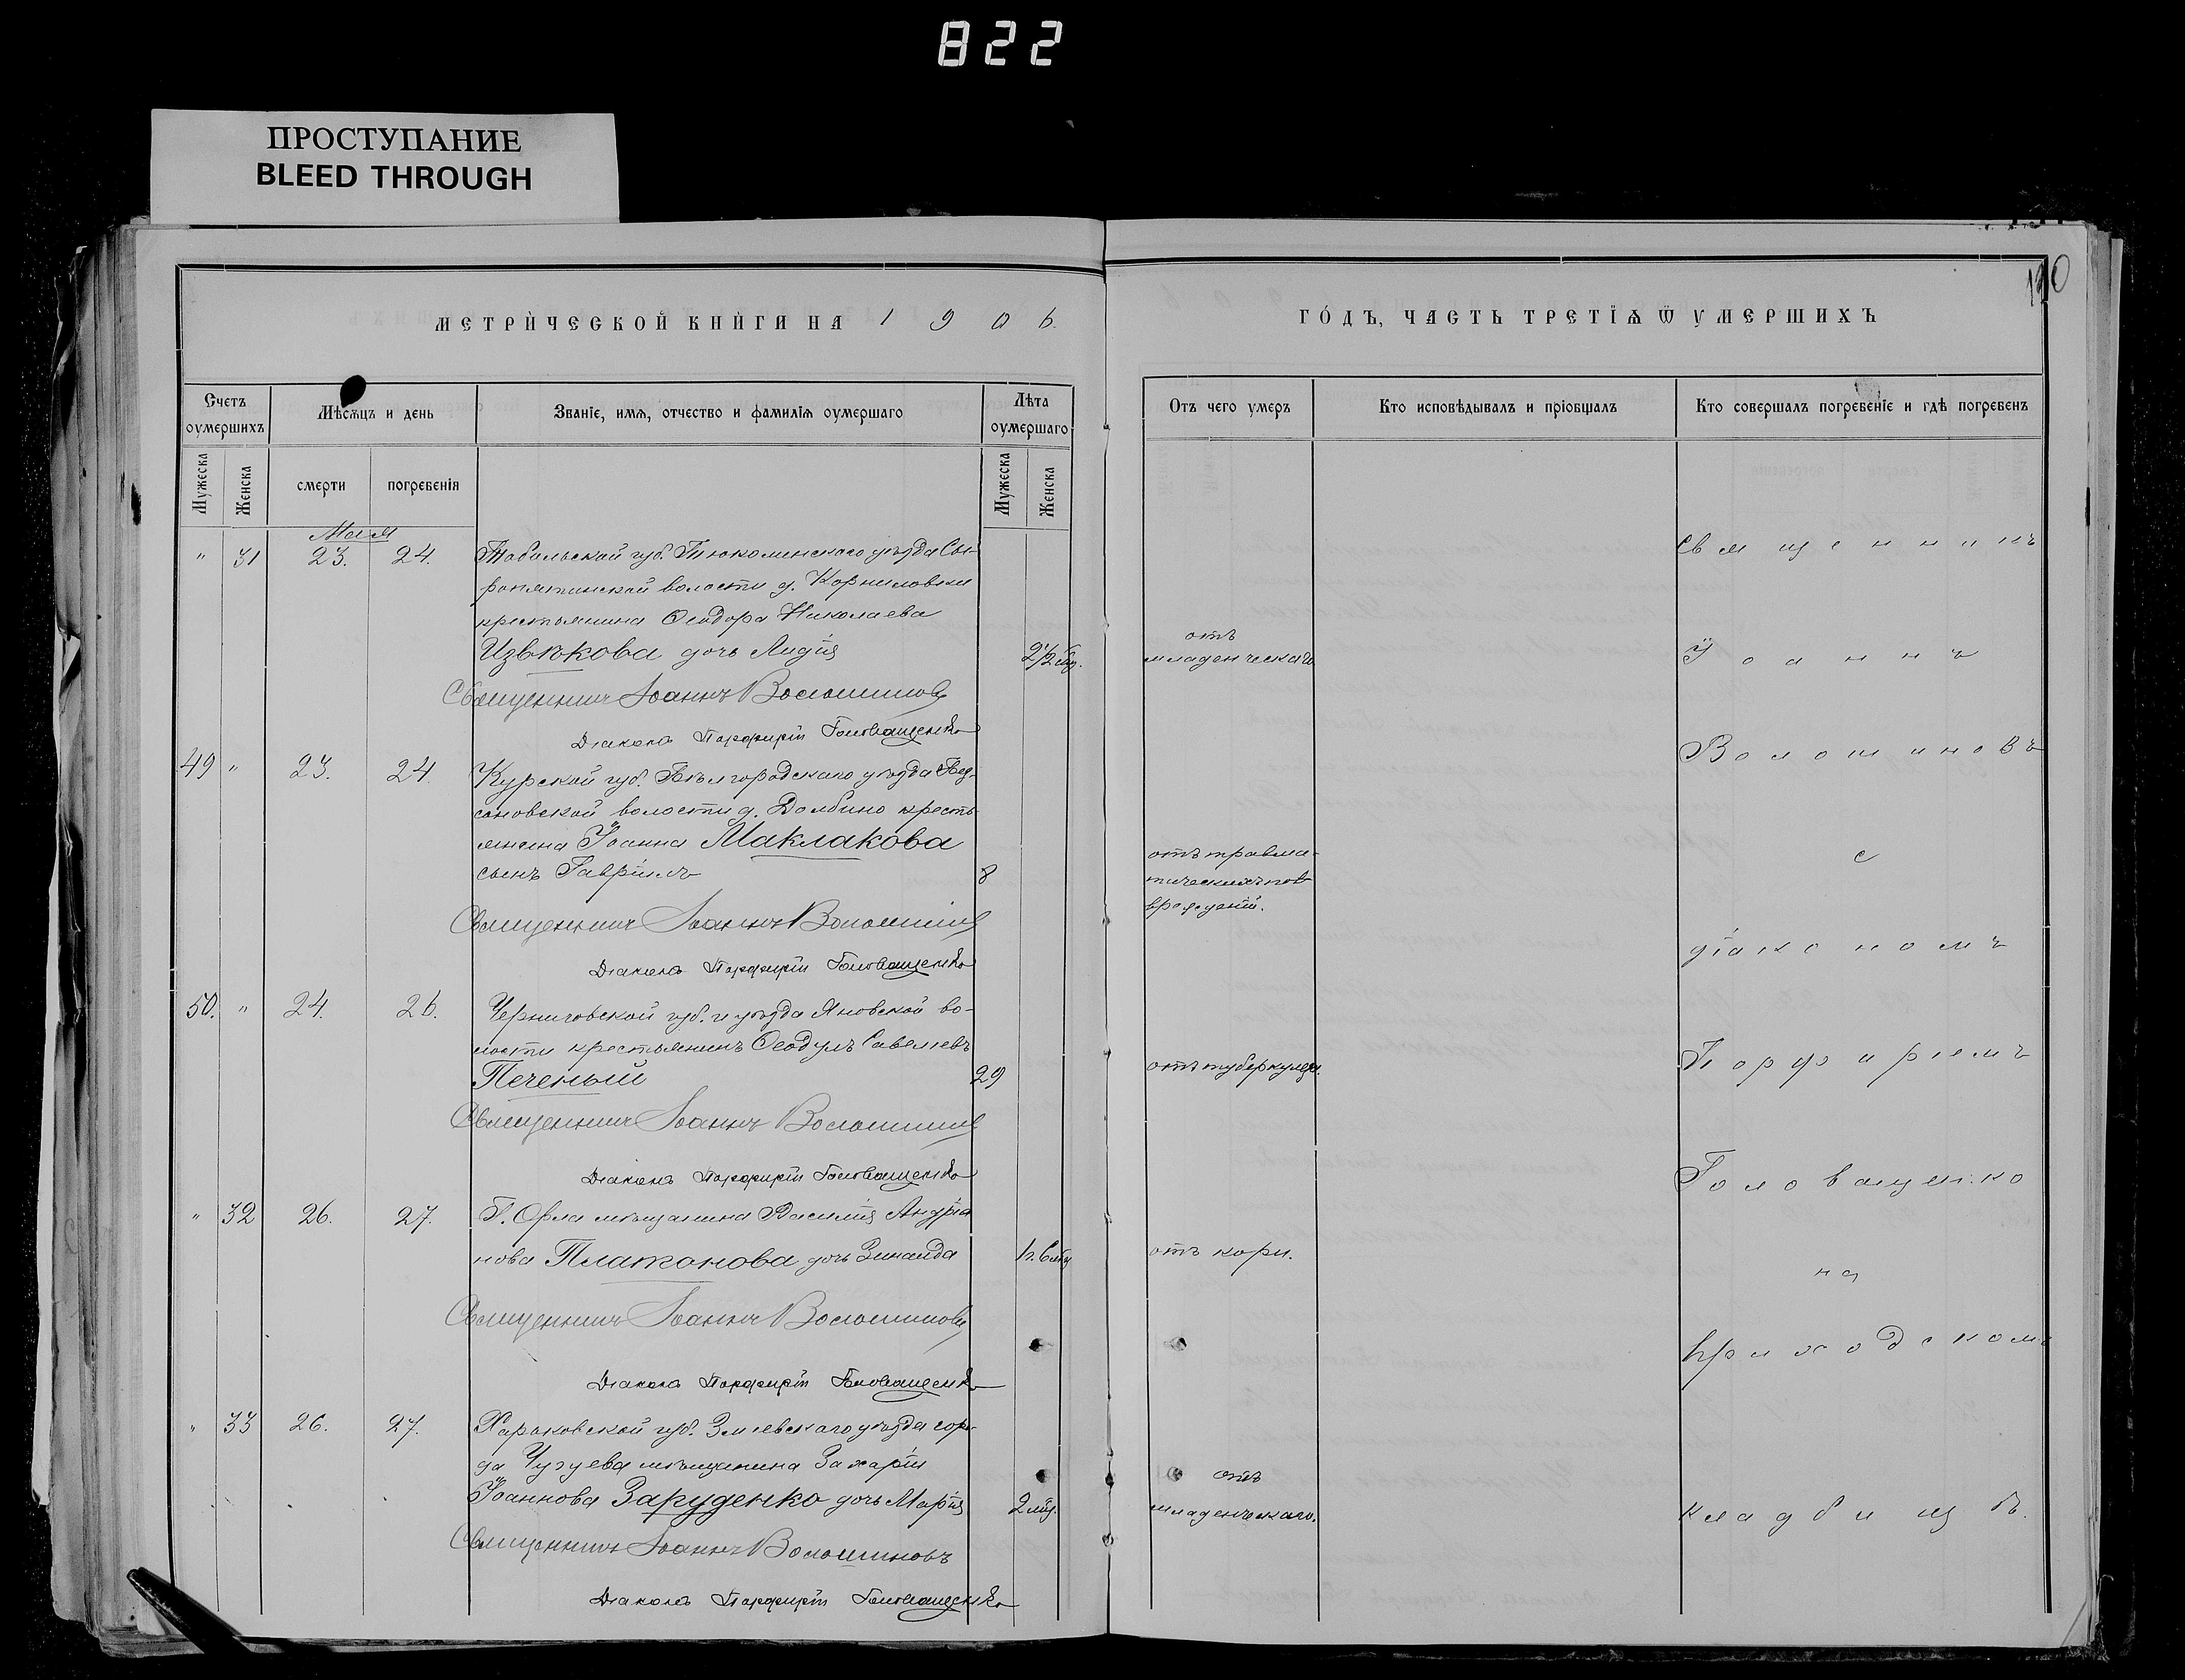 822
ПРОСТУПАНИЕ
BLEED THROUGH
190
МЕТРИЧЕСКОЙ КНИГИ НА 1906
ГОДЪ, ЧАСТЬ ТРЕТІѦ Ѿ УМЕРШИХЪ
Счетъ оумершихъ
Мѣсѧцъ и день
Званіе, имѧ, отчество и фамиліѧ оумершаго
Лѣта оумершаго
Отъ чего умеръ
Кто исповѣдывалъ и пріобщалъ
Кто совершалъ погребеніе и гдѣ погребенъ
Мужеска
Женска
смерти
погребенія
Мужеска
Женска
Мая
" 31 23. 24. Тобольской губ. Тюкалинскаго уѣзда Сы-
ропятинской волости д. Корниловки
крестьянина Ѳеодора Николаева
Извѣкова дочь Лидія 2½ мѣс. отъ младенческаго
Священникъ Іоаннъ Волошиновъ
Діаконъ Порфирій Головащенко
49 " 23. 24. Курской губ. Бѣлгородскаго уѣзда
волости д. Долбино кресть-
янина Іоанна Маклакова
сынъ Гавріилъ 8 отъ травма-
тическихъ пов-
врежденій.
Священникъ Іоаннъ Волошиновъ
Діаконъ Порфирій Головащенко
50. " 24. 26. Черниговской губ. и уѣзда Яновской во-
лости крестьянинъ Ѳеодулъ Савельевъ
Печеный 29 отъ туберкулеза.
Священникъ Іоаннъ Волошиновъ
Діаконъ Порфирій Головащенко
" 32 26. 27. Г. Орла мѣщанина Василія Андріа
нова Платонова дочь Зинаида 1 г. 6 мѣс отъ кори.
Священникъ Іоаннъ Волошиновъ
Діаконъ Порфирій Головащенко
" 33 26. 27. Харьковской губ. Зміевскаго уѣзда горо-
да Чугуева мѣщанина Захарія
Іоаннова Заруденко дочь Марія 2 мѣс. отъ младенческаго.
Священникъ Іоаннъ Волошиновъ
Діаконъ Порфирій Головащенко
Священникъ
Іоаннъ
Волошиновъ
с
діакономъ
Порфиріемъ
Головащенко
на
приходскомъ
кладбищѣ.